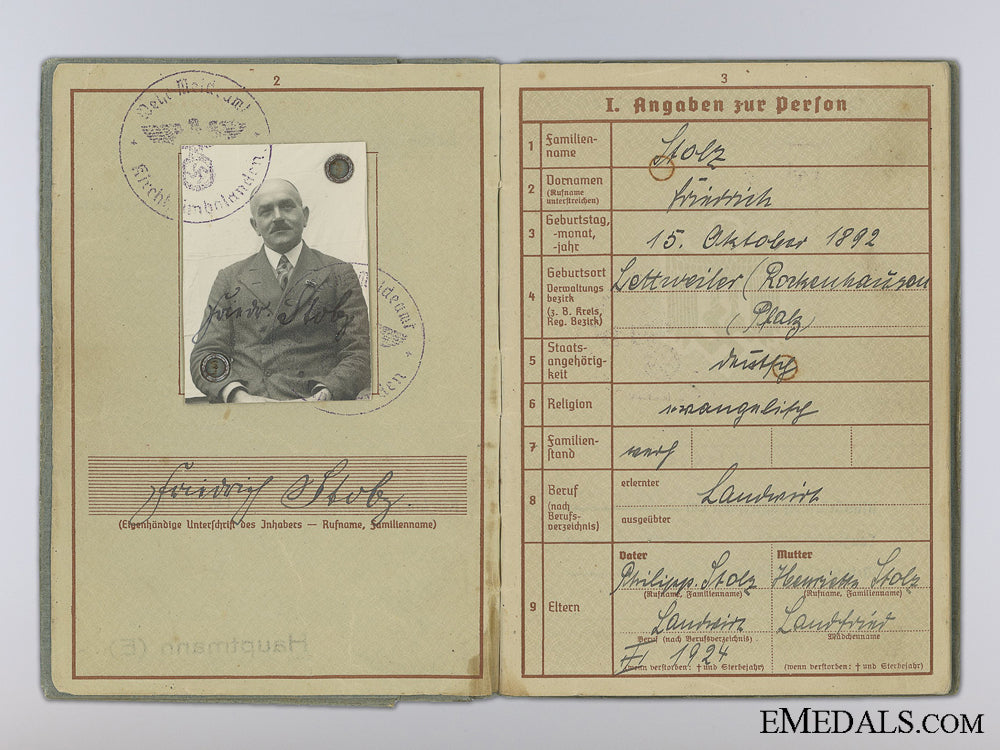 2
Wehr Meldeamt
Kirchheimbolanden
Friedr. Stolz
Meldeamt
den
Friedrich Stolz
(Eigenhändige Unterschrift des Inhabers — Rufname, Familienname)
Hauptmann (E)
3
I. Angaben zur Person
1 Familien-
name
Stolz
2 Vornamen
(Rufname
unterstreichen)
Friedrich
3 Geburtstag,
-monat,
-jahr
15. Oktober 1892
4 Geburtsort
Verwaltungs
bezirk
(z. B. Kreis,
Reg. Bezirk)
Lettweiler (Rockenhausen
(Pfalz)
5 Staats-
angehörig-
keit
deutsch
6 Religion
evangelisch
7 Familien-
stand
8 Beruf
(nach
Berufs-
verzeichnis)
erlernter
Landwirt
ausgeübter
9 Eltern
Vater
Philipp Stolz
(Rufname, Familienname)
Landwirt
Beruf (nach Berufsverzeichnis)
1924
(wenn verstorben: † und Sterbejahr)
Mutter
Henriette Stolz
(Rufname, Familienname)
Landfried
Mädchenname
(wenn verstorben: † und Sterbejahr)
EMEDALS.COM